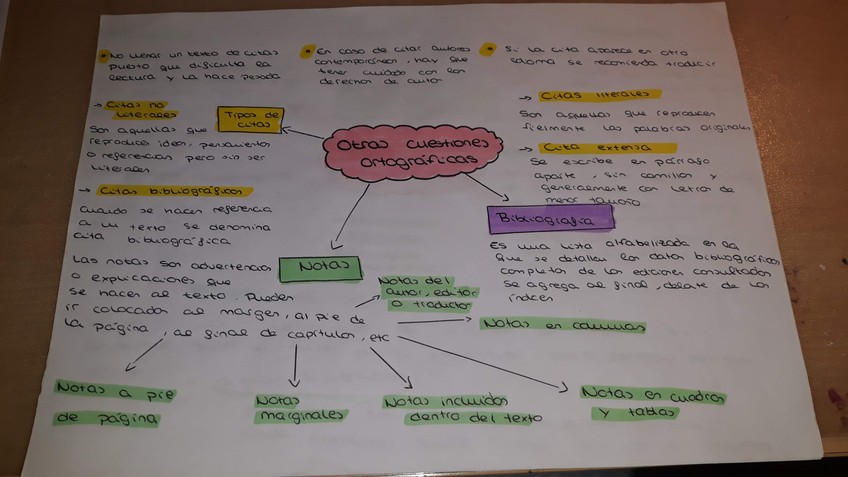 No llenar un texto de citas
puesto que dificulta la
lectura y la hace pesada
En caso de citar autores
contemporáneos, hay que
tener cuidado con los
derechos de autor
Si la cita aparece en otro
idioma se recomienda traducir
→ Citas no
literales
Son aquellas que
reproduce ideas, pensamientos
o referencias pero sin ser
literales
Tipos de
citas
Otras cuestiones
ortográficas
→ Citas literales
Son aquellas que reproducen
fielmente las palabras originales
→ Cita extensa
Se escribe en párrafo
aparte, sin comillas y
generalmente con letras de
menor tamaño
→ Citas bibliográficas
Cuando se hacen referencia
a un texto se denomina
cita bibliográfica
Bibliografia
Es una lista alfabetizada en la
que se detallen los datos bibliográficos
completos de las ediciones consultadas
Se agrega al final, delate de los
índices
Notas
Las notas son advertencias
o explicaciones que
se hacen al texto. Pueden
ir colocadas al margen, al pie de
la página, al final de capítulos, etc
Notas del
autor, editor
o traductor
Notas en columnas
Notas a pie
de página
Notas
marginales
Notas incluidas
dentro del texto
Notas en cuadros
y tablas